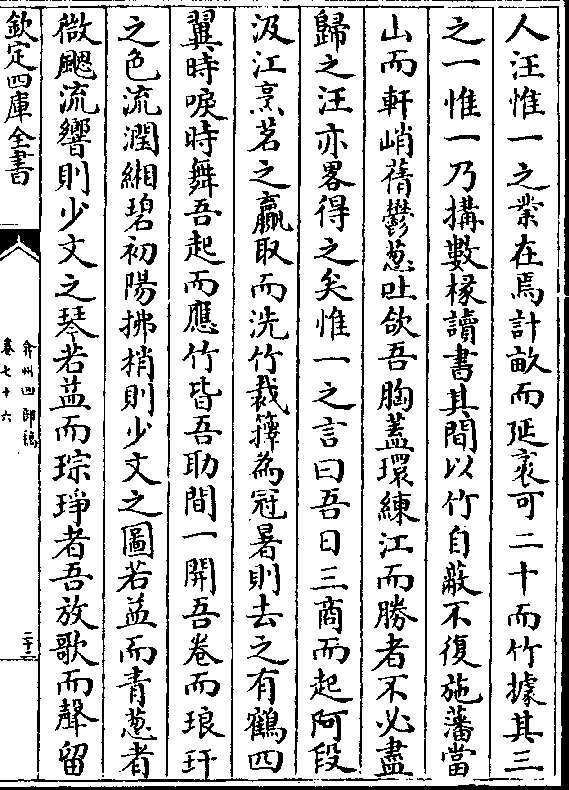 人汪惟一之業在焉計畝而延袤可二十而竹據其三
之一惟一乃搆數椽讀書其間以竹自蔽不復施藩當
山而軒峭蒨鬱葱吐欲吾胸蓋環練江而勝者不必盡
歸之汪亦畧得之矣惟一之言曰吾日三商而起阿段
汲江烹茗之羸取而洗竹裁籜為冠暑則去之有鶴四
翼時唳時舞吾起而應竹皆吾助間一開吾卷而琅玕
之色流潤緗碧初陽拂梢則少文之圖若益而青葱者
微颸流響則少文之琴若益而琮琤者吾放歌而聲留
欽定四庫全書
弇州四部稿
卷七十六
二十三